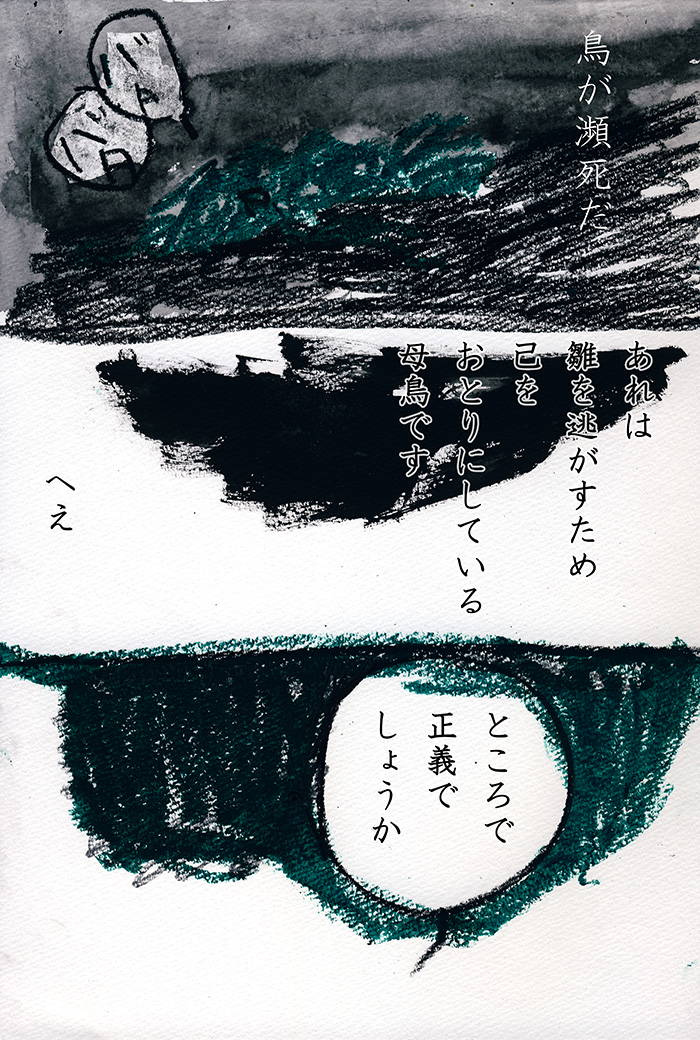 鳥が瀕死だ
バタ
バタ
あれは
雛を逃がすため
己を
おとりにしている
母鳥です
へえ
ところで
正義で
しょうか